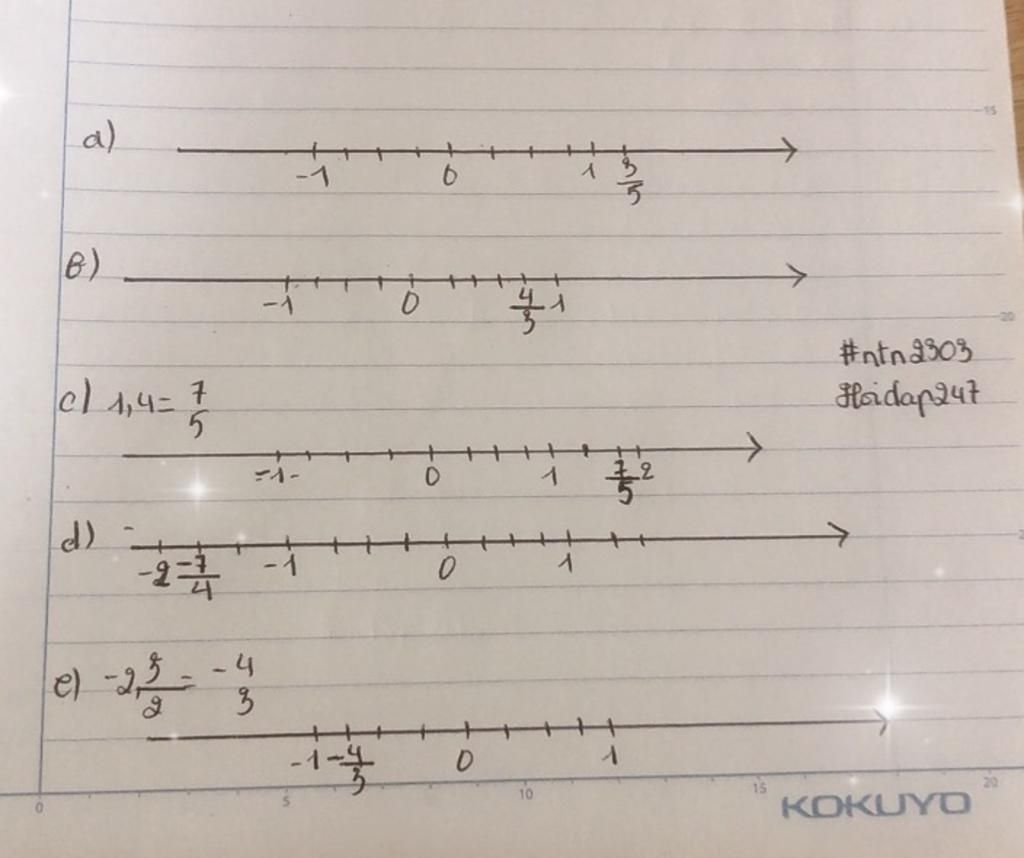 a)
-1 0 1 3/5
b)
-1 0 4/3 1
#ntn2303
#hoidap247
c) 1,4 = 7/5
-1 0 1 7/5 2
d)
-2 -7/4 -1 0 1
e) -4/3
-1 -4/3 0 1
KOKUYO
0 5 10 15 20
15
20